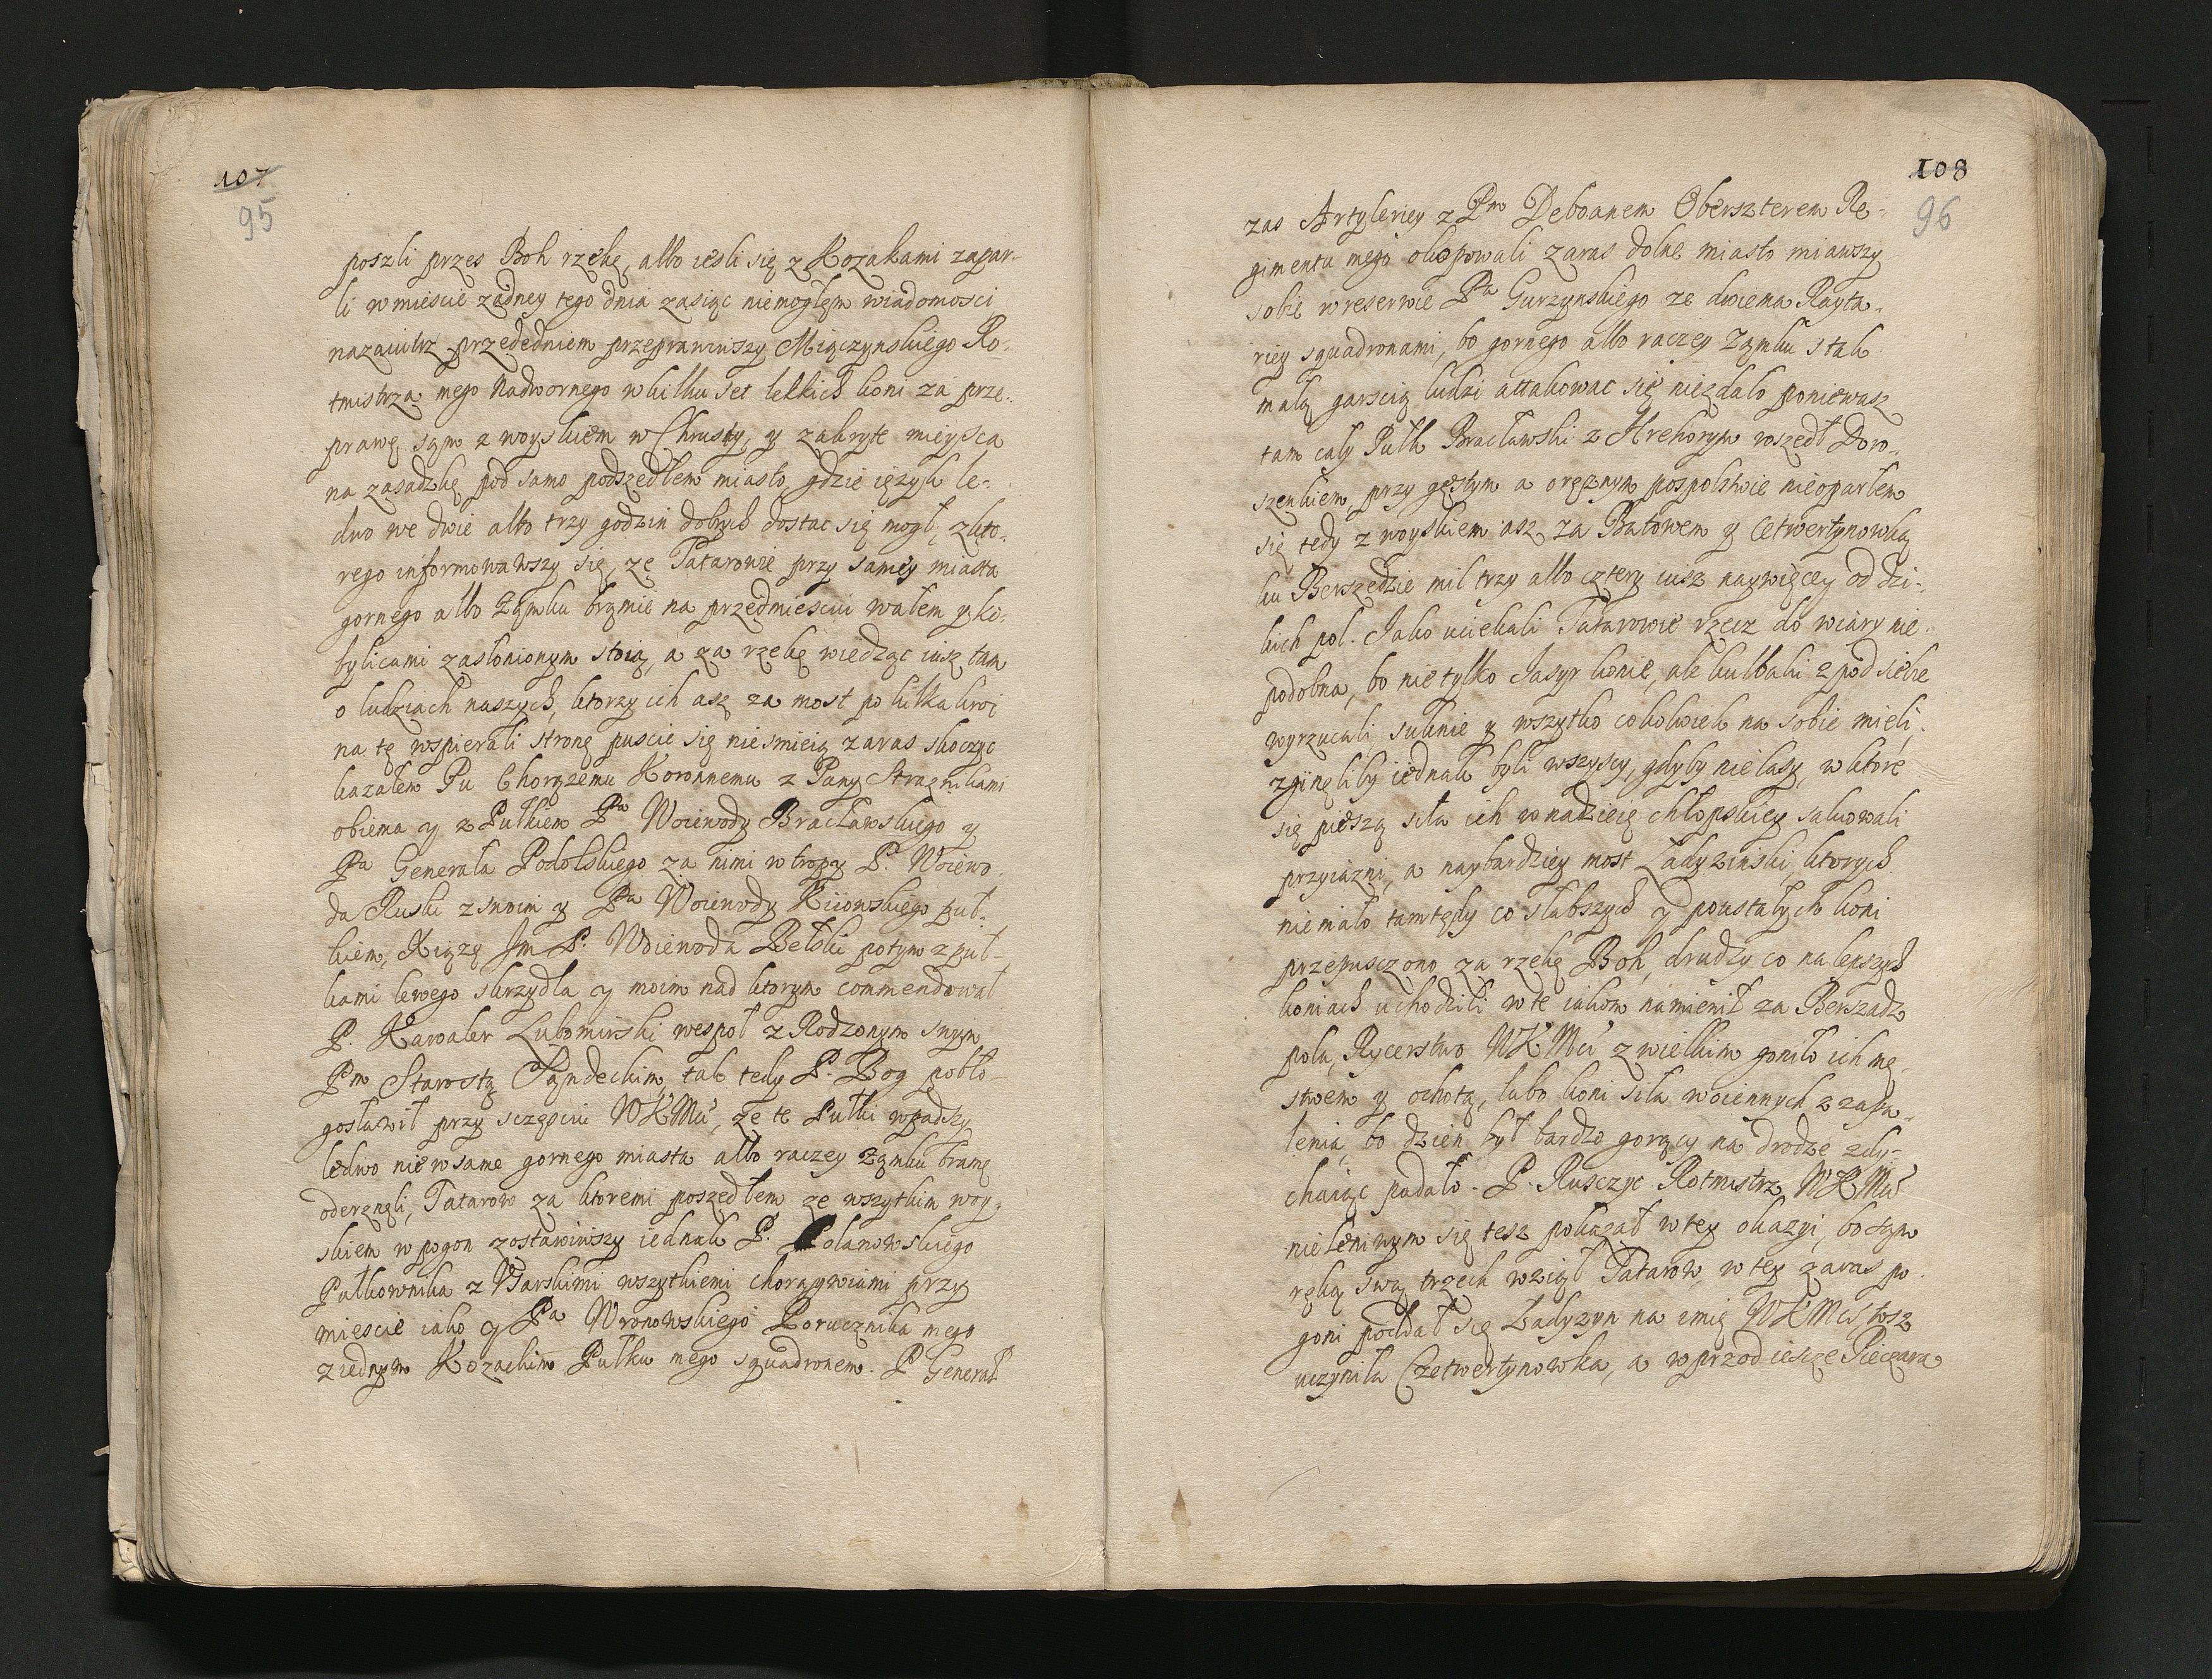 107
95
poszli przes Boh rzekę, albo iesli się z Kozakami zapar-
li w miescie zadney tego dnia zasiąc niemogłem wiadomosci
nazaiutrz przededniem przeprawiwszy Miączynskiego Ro-
tmistrza mego Nadwornego w kilku set lekkich koni za prze-
prawę sam z woyskiem w Chrusty, y zakryte mieysca
na zasadzkę pod samo podszedłem miasto, gdzie ięzyk le-
dwo we dwie albo trzy godzin dobrych dostac się mogł, z kto-
rego informowawszy się, ze Tatarowie przy samey miasta
gornego albo Zamku bramie na przedmiesciu wałem y ko-
bylicami zasłonionym stoią, a za rzekę wiedząc iusz tam
o ludziach naszych, ktorzy ich asz za most po kilka kroc
na tę wspierali stronę puscic się niesmieią zaras skoczyc
kazałem Pu Chorązemu Koronnemu z Pany Straznikami
obiema y z Pułkiem Pa Woiewody Bracławskiego y
Pa Generała Podolskiego za nimi w tropy P. Woiewo-
da Ruski z swoim y Pa Woiewody Kiiowskiego puł-
kiem, Xiązę Jm P. Woiewoda Bełski potym z puł-
kami lewego skrzydła y moim nad ktorym commendował
P. Kawaler Lubomirski wespoł z Rodzonym swym
Pm Starostą Sąndeckim, tak tedy P. Bog pobło-
gosławił przy sczęsciu WKMci, ze te Pułki wpadszy
ledwo nie w same gornego miasta albo raczey Zamku bramę
oderznęli, Tatarow za ktoremi poszedłem ze wszytkim woy-
skiem w pogon zostawiwszy iednak P. Polanowskiego
Pułkownika z Barskimi wszytkiemi chorągwiami przy
miescie iako y Pa Wronowskiego Porucznika mego
z iednym Kozackim Pułku mego squadronem. P Generał
108
96
zas Artyleriey z Pm Deboanem Oberszterem Re-
gimentu mego okopowali zaras dolne miasto miawszy
sobie w reserwie Pa Gurzynskiego ze dwiema Rayta-
riey squadronami, bo gornego albo raczey Zamku stak
małą garscią ludzi attakowac się niezdało poniewasz
tam cały Pułk Bracławski z Hrehorym wszedł Doro-
szenkiem, przy gęstym a oręznym pospolstwie nieoparłem
się tedy z woyskiem asz za Batowem y Cetwertynowką
ku Berszedzie mil trzy albo cztery iusz naywięcey od dzi-
kich pol. Jako uciekali Tatarowie rzecz do wiary nie-
podobna, bo nie tylko Jasyr konie, ale kulbaki z pod siebie
wyrzucali, suknie y wszytko cokolwiek na sobie mieli,
zginęliby iednak byli wszyscy, gdyby nie lasy, w ktore
się pieszą siła ich w nadzieię chłopskiey salwowali
przyiazni, a naybardziey most Ładyzinski, ktorych
niemało tamtędy co słabszych y poustałych koni
przepusczono za rzekę Boh, drudzy co na lepszych
koniach uchodzili w te iakom namienił za Berszadz
pola, Rycerstwo WKMci z wielkim goniło ich mę-
stwem y ochotą, lubo koni siła woiennych z zapa-
lenia, bo dzien był bardzo gorący na drodze zdy-
chaiąc padało. P. Rusczyc Rotmistrz WKMci
nieleniwym się tesz pokazał w tey okazyi, bo sam
ręką swą trzech wziął Tatarow, w tey zaras po-
goni poddał się Ładyzyn na imię WKMci, tosz
uczyniła Czetwertynowka, a wprzod iescze Pieczara